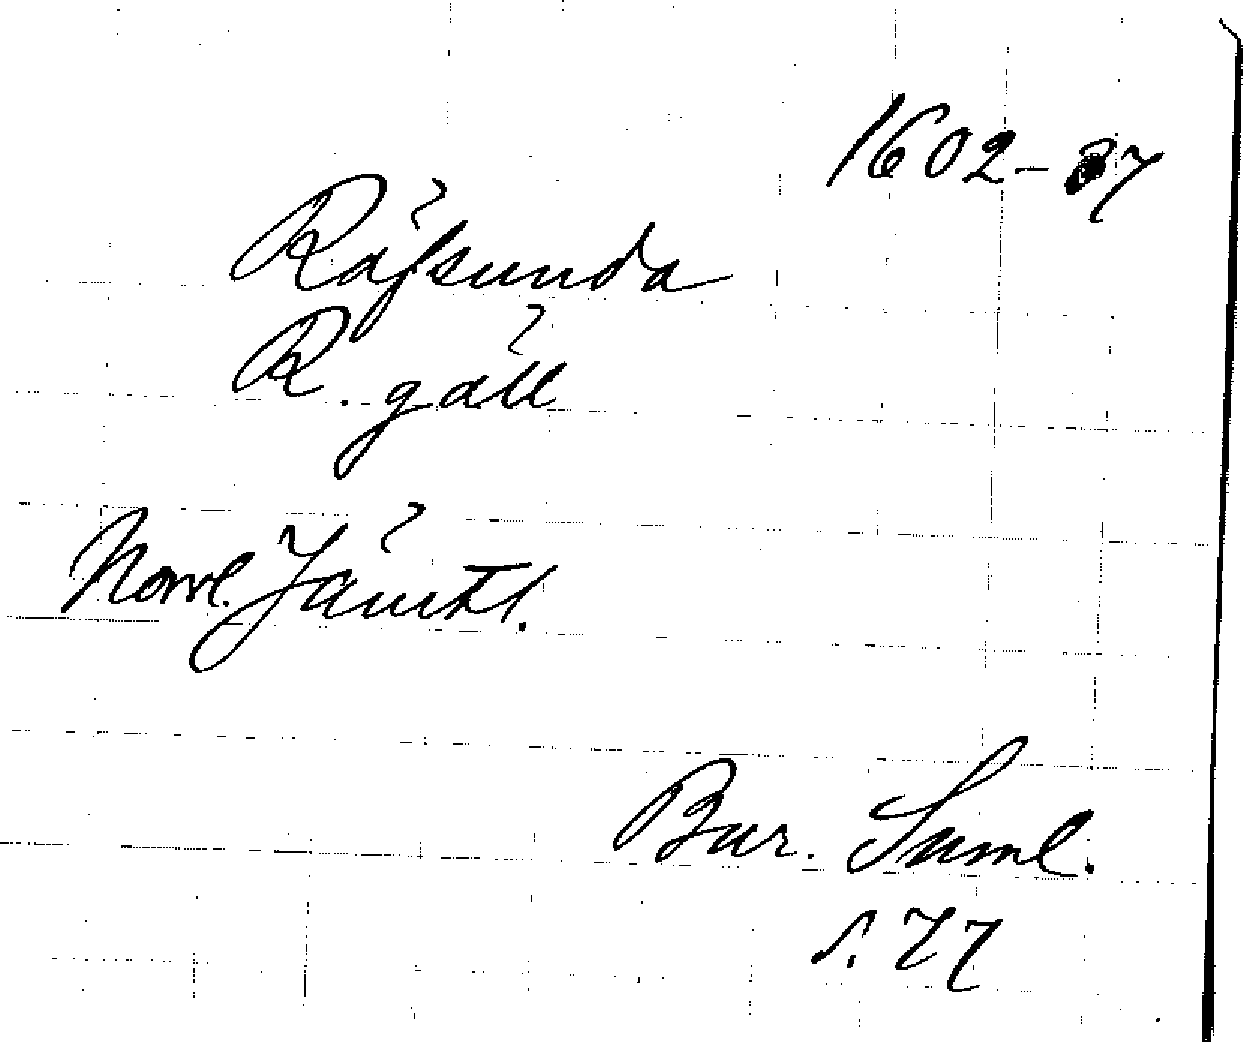 1602-37
Räfsunda
R. gäll
Norrl. Jämtl.
Bur. Saml.
s. 77